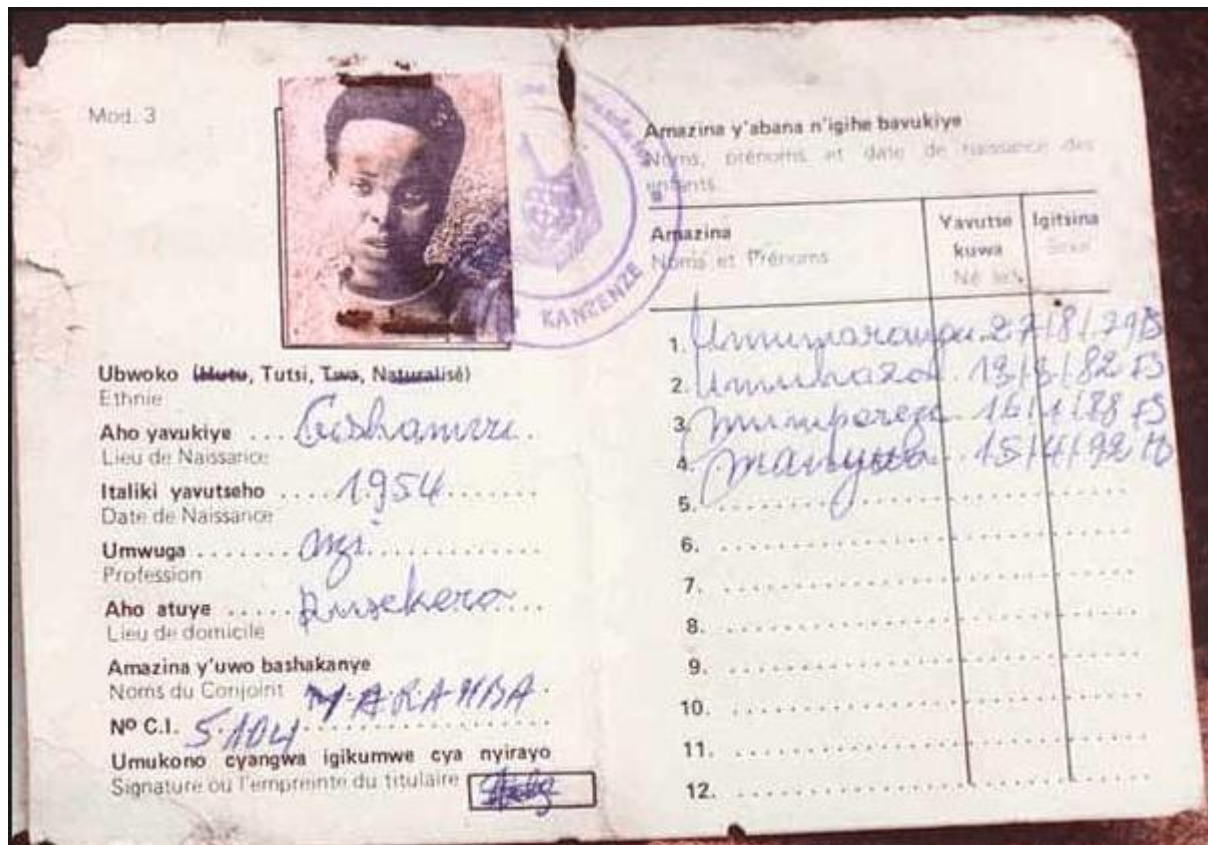 Mod. 3
KANZENZE
Ubwoko (Hutu, Tutsi, Twa, Naturalisé)
Ethnie
Aho yavukiye .... Gishamvu.
Lieu de Naissance
Italiki yavutseho .... 1954........
Date de Naissance
Umwuga .......
Profession
Aho atuye ..... Rusekera....
Lieu de domicile
Amazina y'uwo bashakanye
Noms du Conjoint MARAMBA.
Nº C.I. 5.104...............
Umukono cyangwa igikumwe cya nyirayo
Signature ou l'empreinte du titulaire
Amazina y'abana n'igihe bavukiye
Noms, prénoms et date de naissance des
enfants
Amazina Yavutse Igitsina
Noms et Prénoms kuwa Sexe
Né le
1. 27/8/79
2. Umuhaza. 13/3/82
3. 16/1/88
4. 15/4/92
5. ..............................
6. ..............................
7. ..............................
8. ..............................
9. ..............................
10. ..............................
11. ..............................
12. ..............................